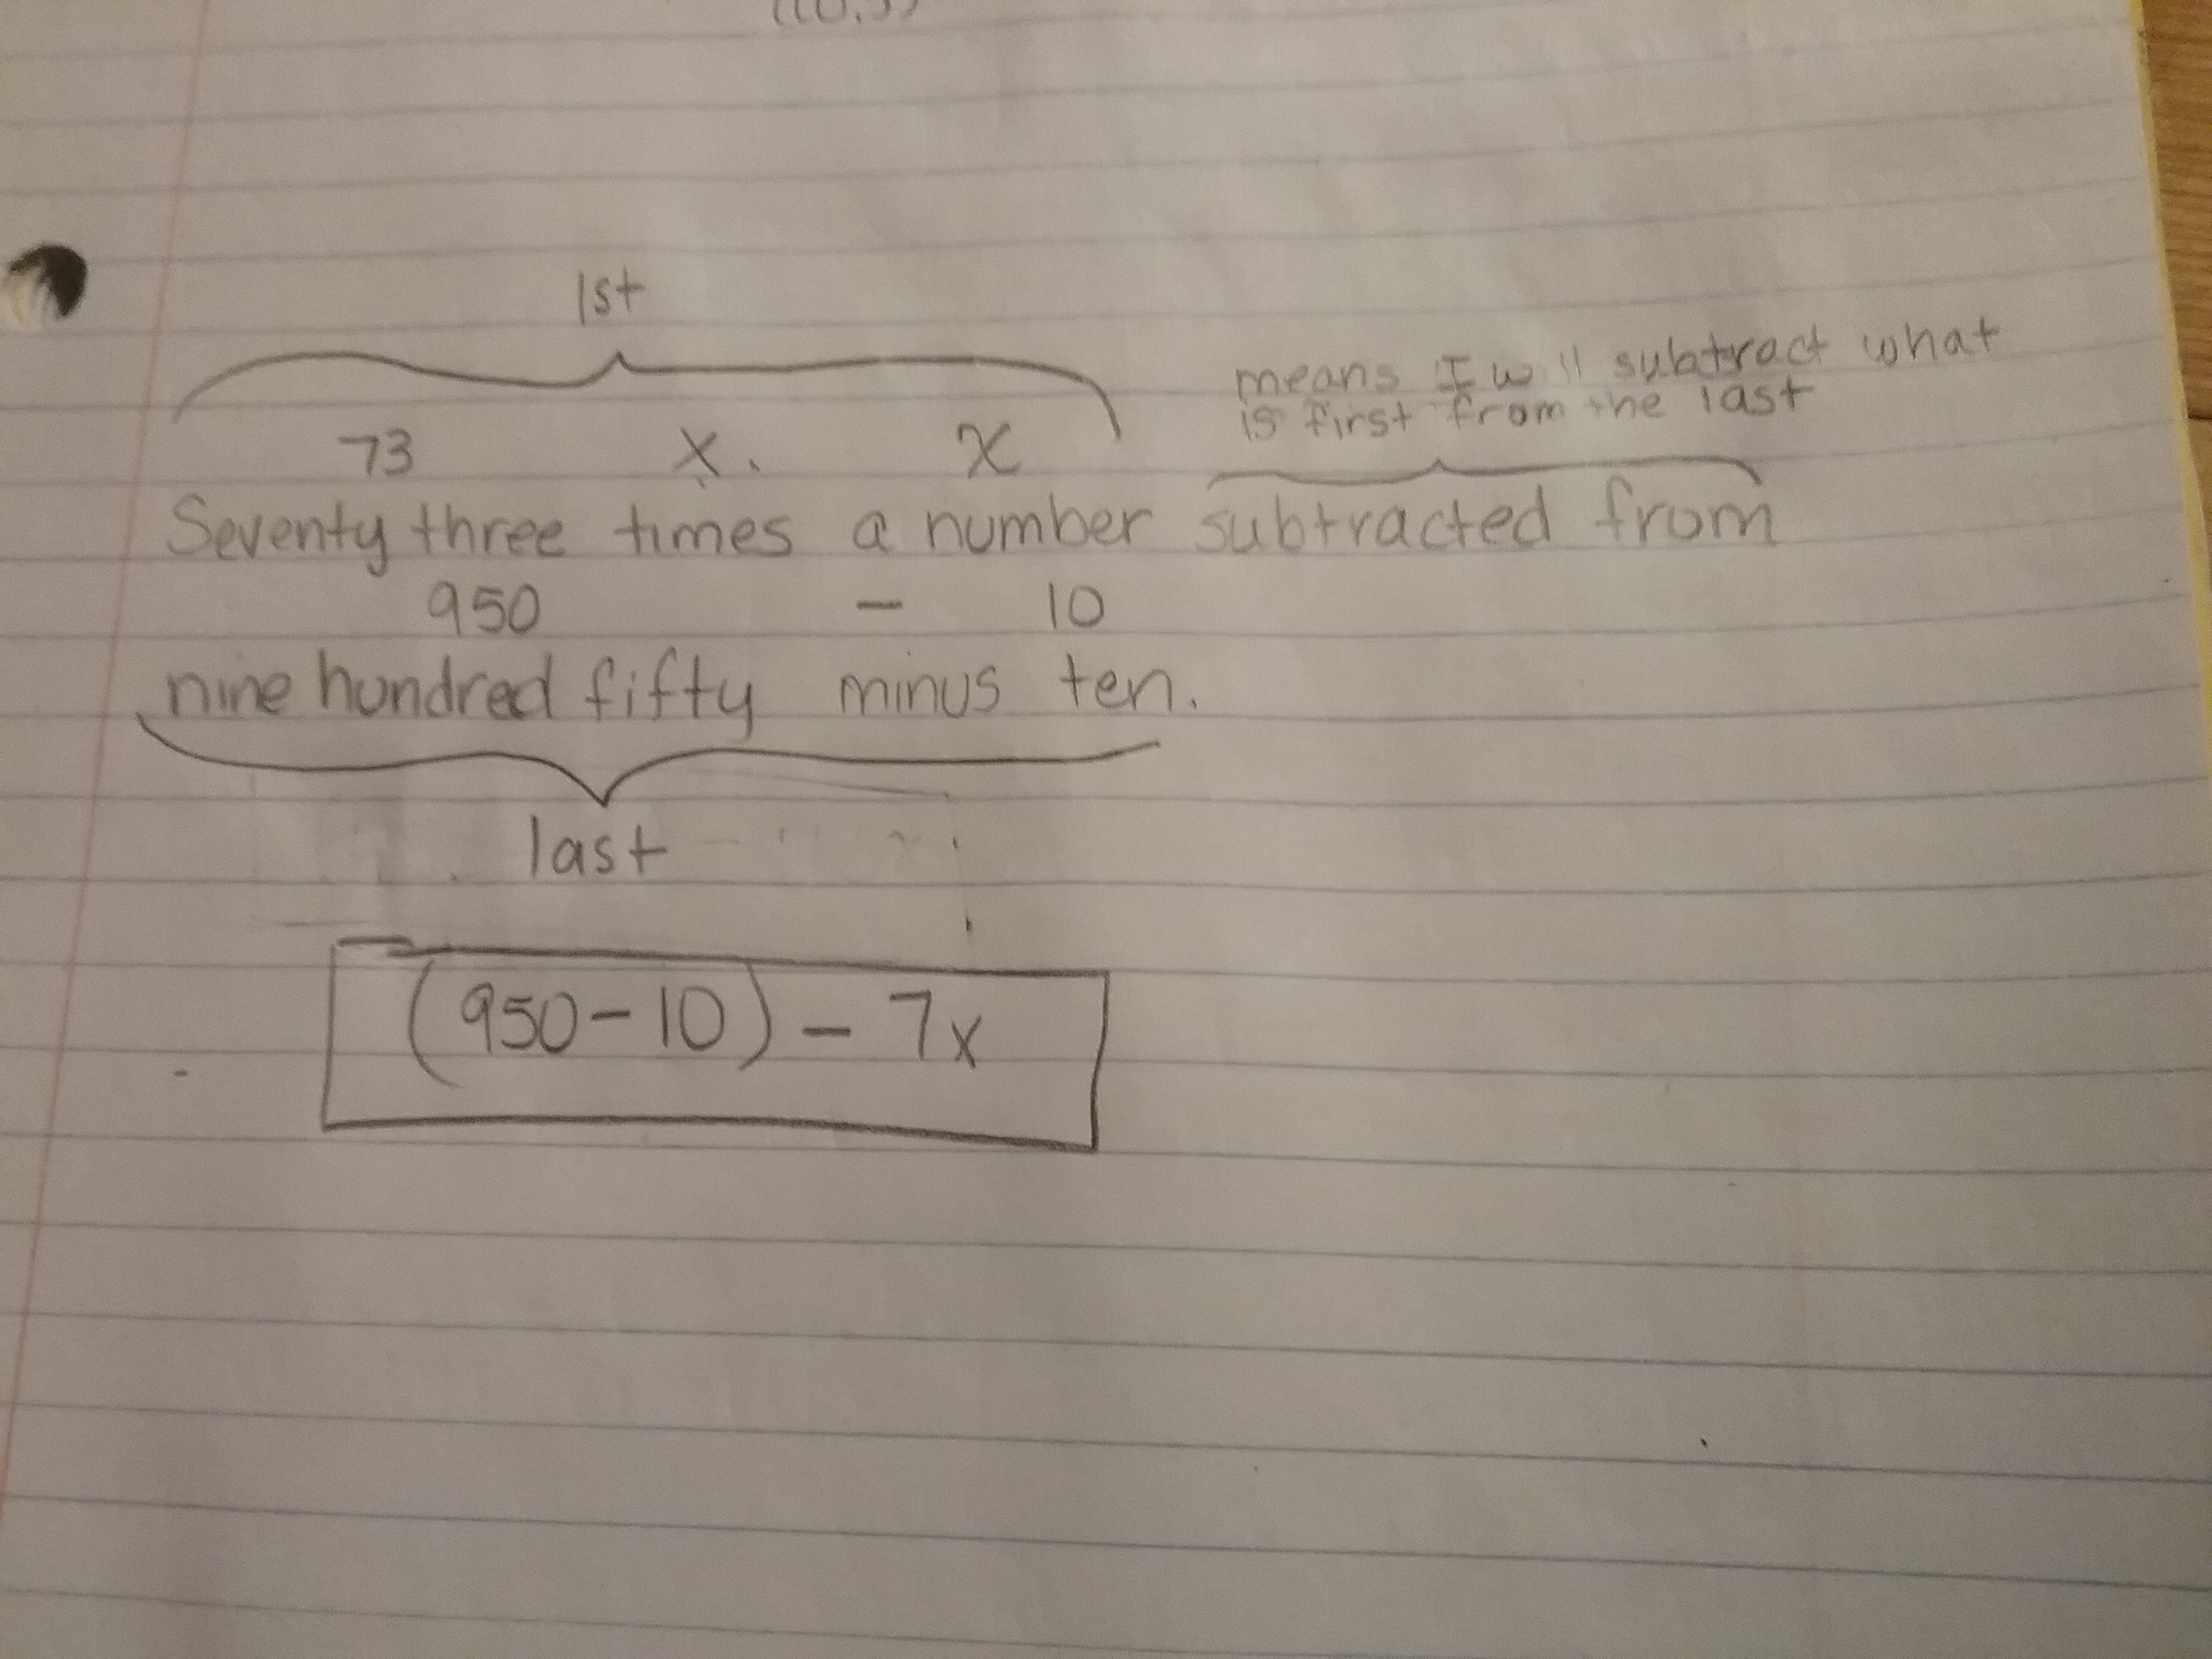 1st
means I will subtract what
is first from the last
73 x. x
Seventy three times a number subtracted from
950 - 10
nine hundred fifty minus ten.
last
(950-10) - 7x